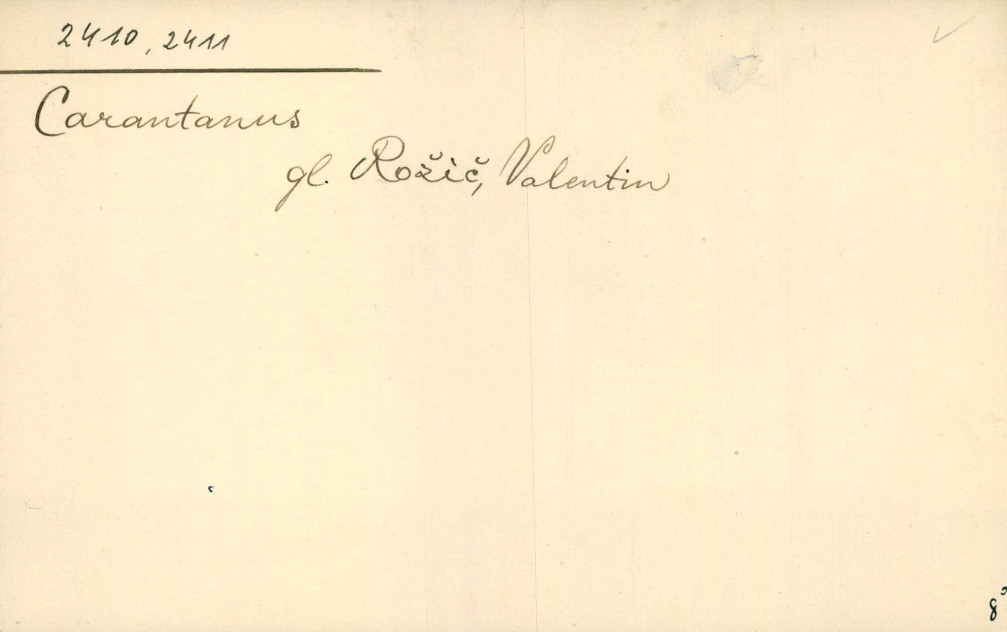 2410, 2411
Carantanus
gl. Rožič, Valentin
8°